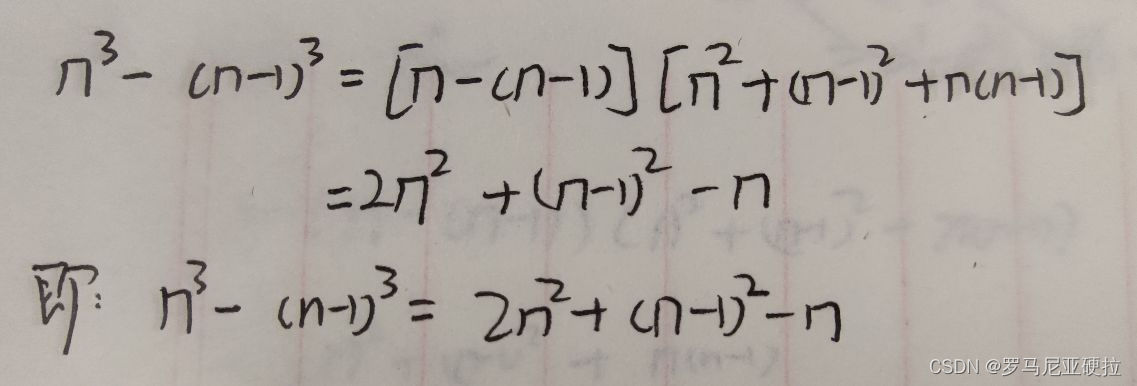 n³ - (n-1)³ = [n-(n-1)] [n²+(n-1)²+n(n-1)]
=2n² + (n-1)² - n
即: n³ - (n-1)³ = 2n²+ (n-1)² - n
CSDN @罗马尼亚硬拉